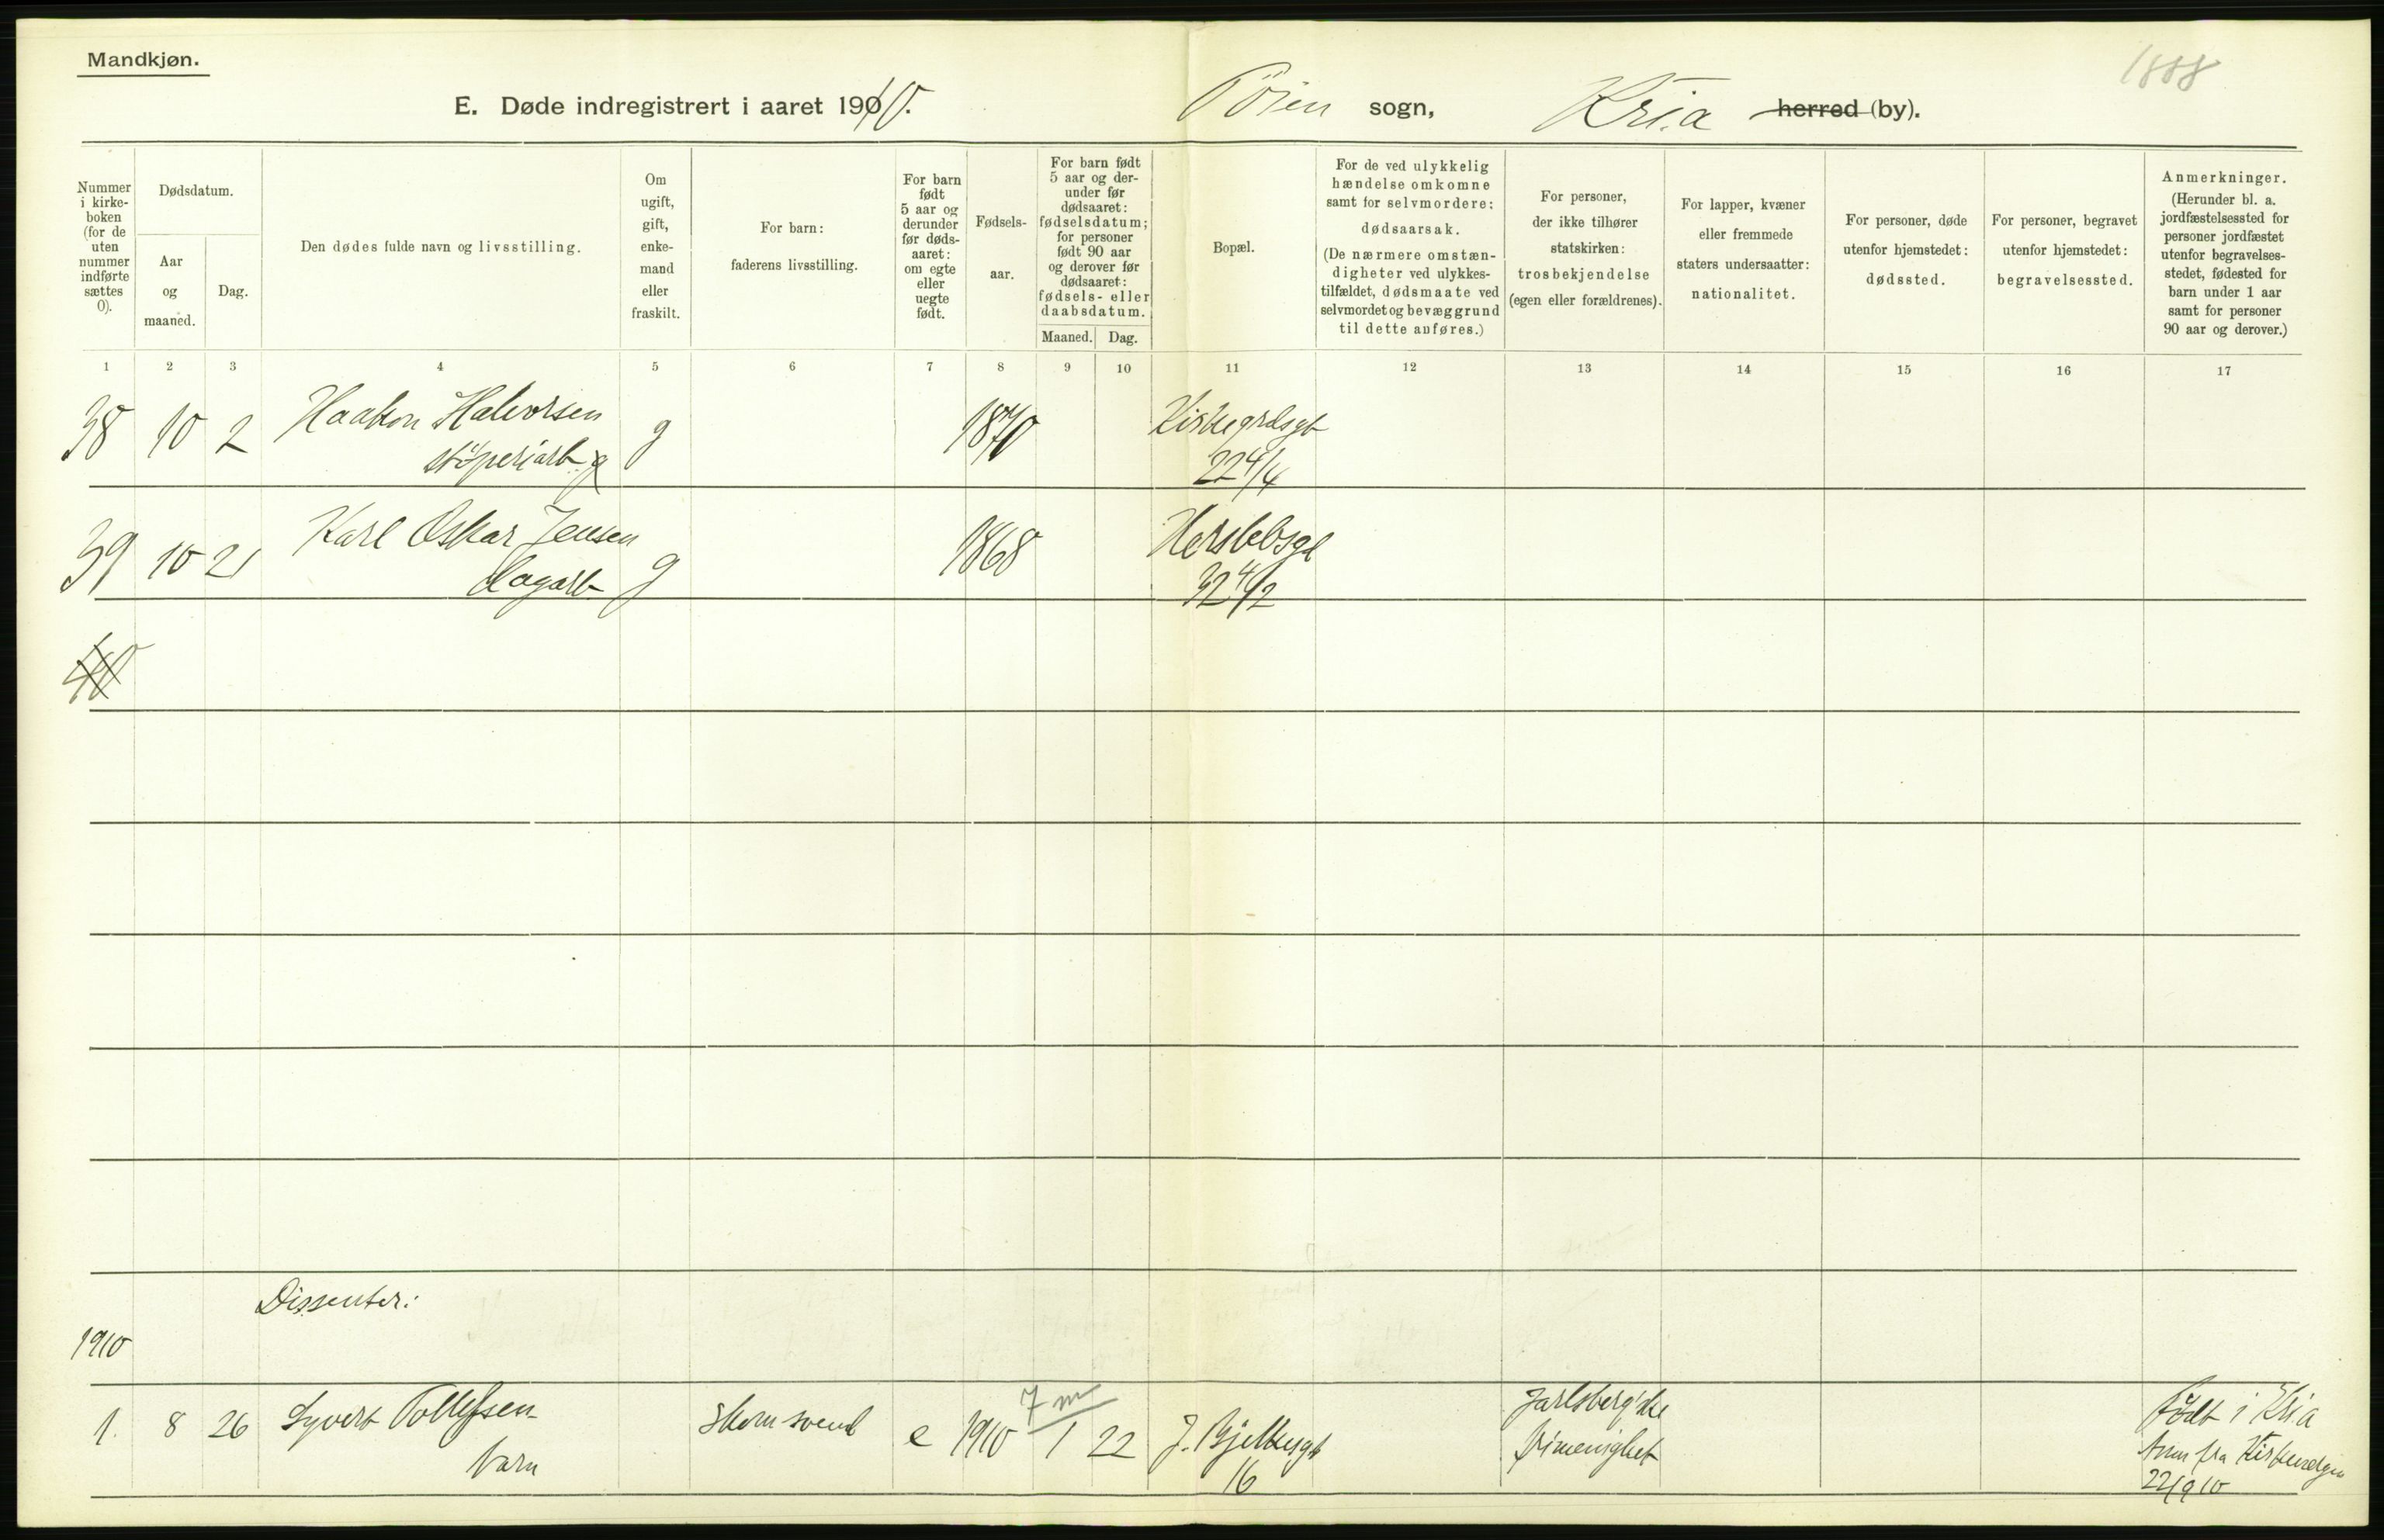 Mandkjøn.
1888
E. Døde indregistrert i aaret 1910. Töien sogn, Kria herred (by).
Nummer
i kirke-
boken
(for de
uten
nummer
indførte
sættes
0).
Dødsdatum.
Aar
og
maaned.
Dag.
Den dødes fulde navn og livsstilling.
Om
ugift,
gift,
enke-
mand
eller
fraskilt.
For barn:
faderens livsstilling.
For barn
født
5 aar og
derunder
før døds-
aaret:
om egte
eller
uegte
født.
Fødsels-
aar.
For barn født
5 aar og der-
under før
dødsaaret:
fødselsdatum;
for personer
født 90 aar
og derover før
dødsaaret:
fødsels- eller
daabsdatum.
Maaned. Dag.
Bopæl.
For de ved ulykkelig
hændelse omkomne
samt for selvmordere:
dødsaarsak.
(De nærmere omstæn-
digheter ved ulykkes-
tilfældet, dødsmaate ved
selvmordet og bevæggrund
til dette anføres.)
For personer,
der ikke tilhører
statskirken:
trosbekjendelse
(egen eller forældrenes).
For lapper, kvæner
eller fremmede
staters undersaatter:
nationalitet.
For personer, døde
utenfor hjemstedet:
dødssted.
For personer, begravet
utenfor hjemstedet:
begravelsessted.
Anmerkninger.
(Herunder bl. a.
jordfæstelsessted for
personer jordfæstet
utenfor begravelses-
stedet, fødested for
barn under 1 aar
samt for personer
90 aar og derover.)
1 2 3 4 5 6 7 8 9 10 11 12 13 14 15 16 17
38 10 2 Haakon Halvorsen g 1870 Kirkegrdsgt
støperiarb. 22 4/4
39 10 21 Karl Oskar Jensen g 1868 Herslebsgt
Dagarb 32 4/2
40
Dissenter:
1910
7 m
1. 8 26 Syvert Tollefsen skomsvend e 1910 1 22 J. Bjelkesgt Jarlsbergske Födt i Kria
barn 16 frimenighet fra
22/9 10